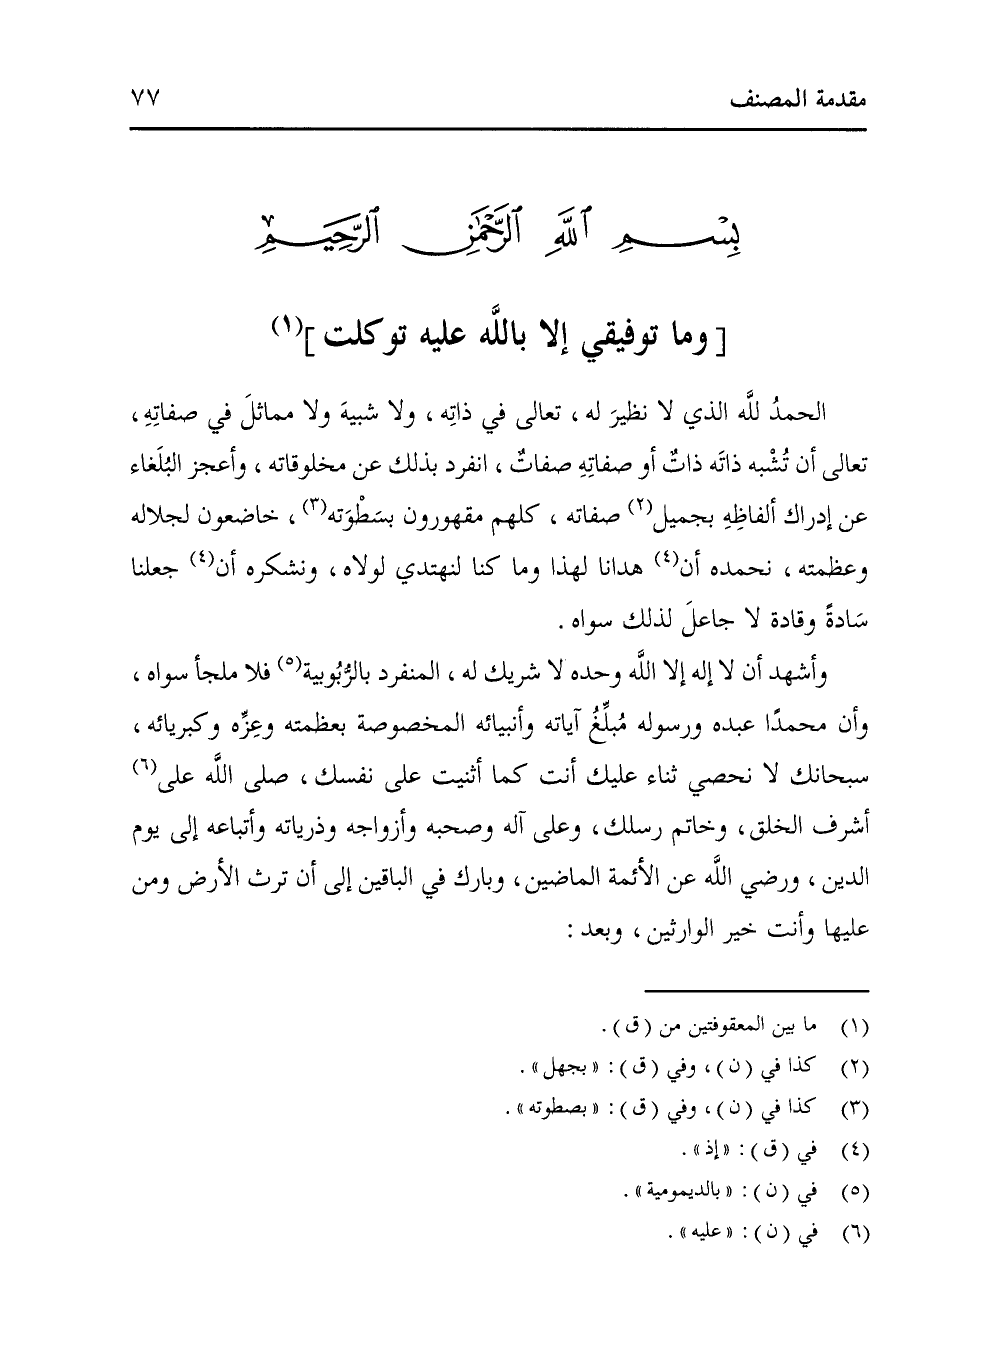 مقدمة المصنف ٧٧
بِسْمِ ٱللَّهِ ٱلرَّحْمَٰنِ ٱلرَّحِيمِ
[ وما توفيقي إلا باللَّه عليه توكلت ](١)
الحمدُ للَّه الذي لا نظيرَ له ، تعالى في ذاتِه ، ولا شبيهَ ولا مماثلَ في صفاتِهِ ،
تعالى أن تُشْبه ذاتَه ذاتٌ أو صفاتِهِ صفاتٌ ، انفرد بذلك عن مخلوقاته ، وأعجز البُلَغاء
عن إدراك ألفاظِهِ بجميل(٢) صفاته ، كلهم مقهورون بسَطْوَته(٣) ، خاضعون لجلاله
وعظمته ، نحمده أن(٤) هدانا لهذا وما كنا لنهتدي لولاه ، ونشكره أن(٤) جعلنا
سَادةً وقادة لا جاعلَ لذلك سواه .
وأشهد أن لا إله إلا اللَّه وحده لا شريك له ، المنفرد بالرُّبُوبية(٥) فلا ملجأ سواه ،
وأن محمدًا عبده ورسوله مُبلِّغُ آياته وأنبيائه المخصوصة بعظمته وعِزِّه وكبريائه ،
سبحانك لا نحصي ثناء عليك أنت كما أثنيت على نفسك ، صلى اللَّه على(٦)
أشرف الخلق ، وخاتم رسلك ، وعلى آله وصحبه وأزواجه وذرياته وأتباعه إلى يوم
الدين ، ورضي اللَّه عن الأئمة الماضين ، وبارك في الباقين إلى أن ترث الأرض ومن
عليها وأنت خير الوارثين ، وبعد :
(١) ما بين المعقوفتين من ( ق ) .
(٢) كذا في ( ن ) ، وفي ( ق ) : « بجهل » .
(٣) كذا في ( ن ) ، وفي ( ق ) : « بصطوته » .
(٤) في ( ق ) : « إذ » .
(٥) في ( ن ) : « بالديمومية » .
(٦) في ( ن ) : « عليه » .